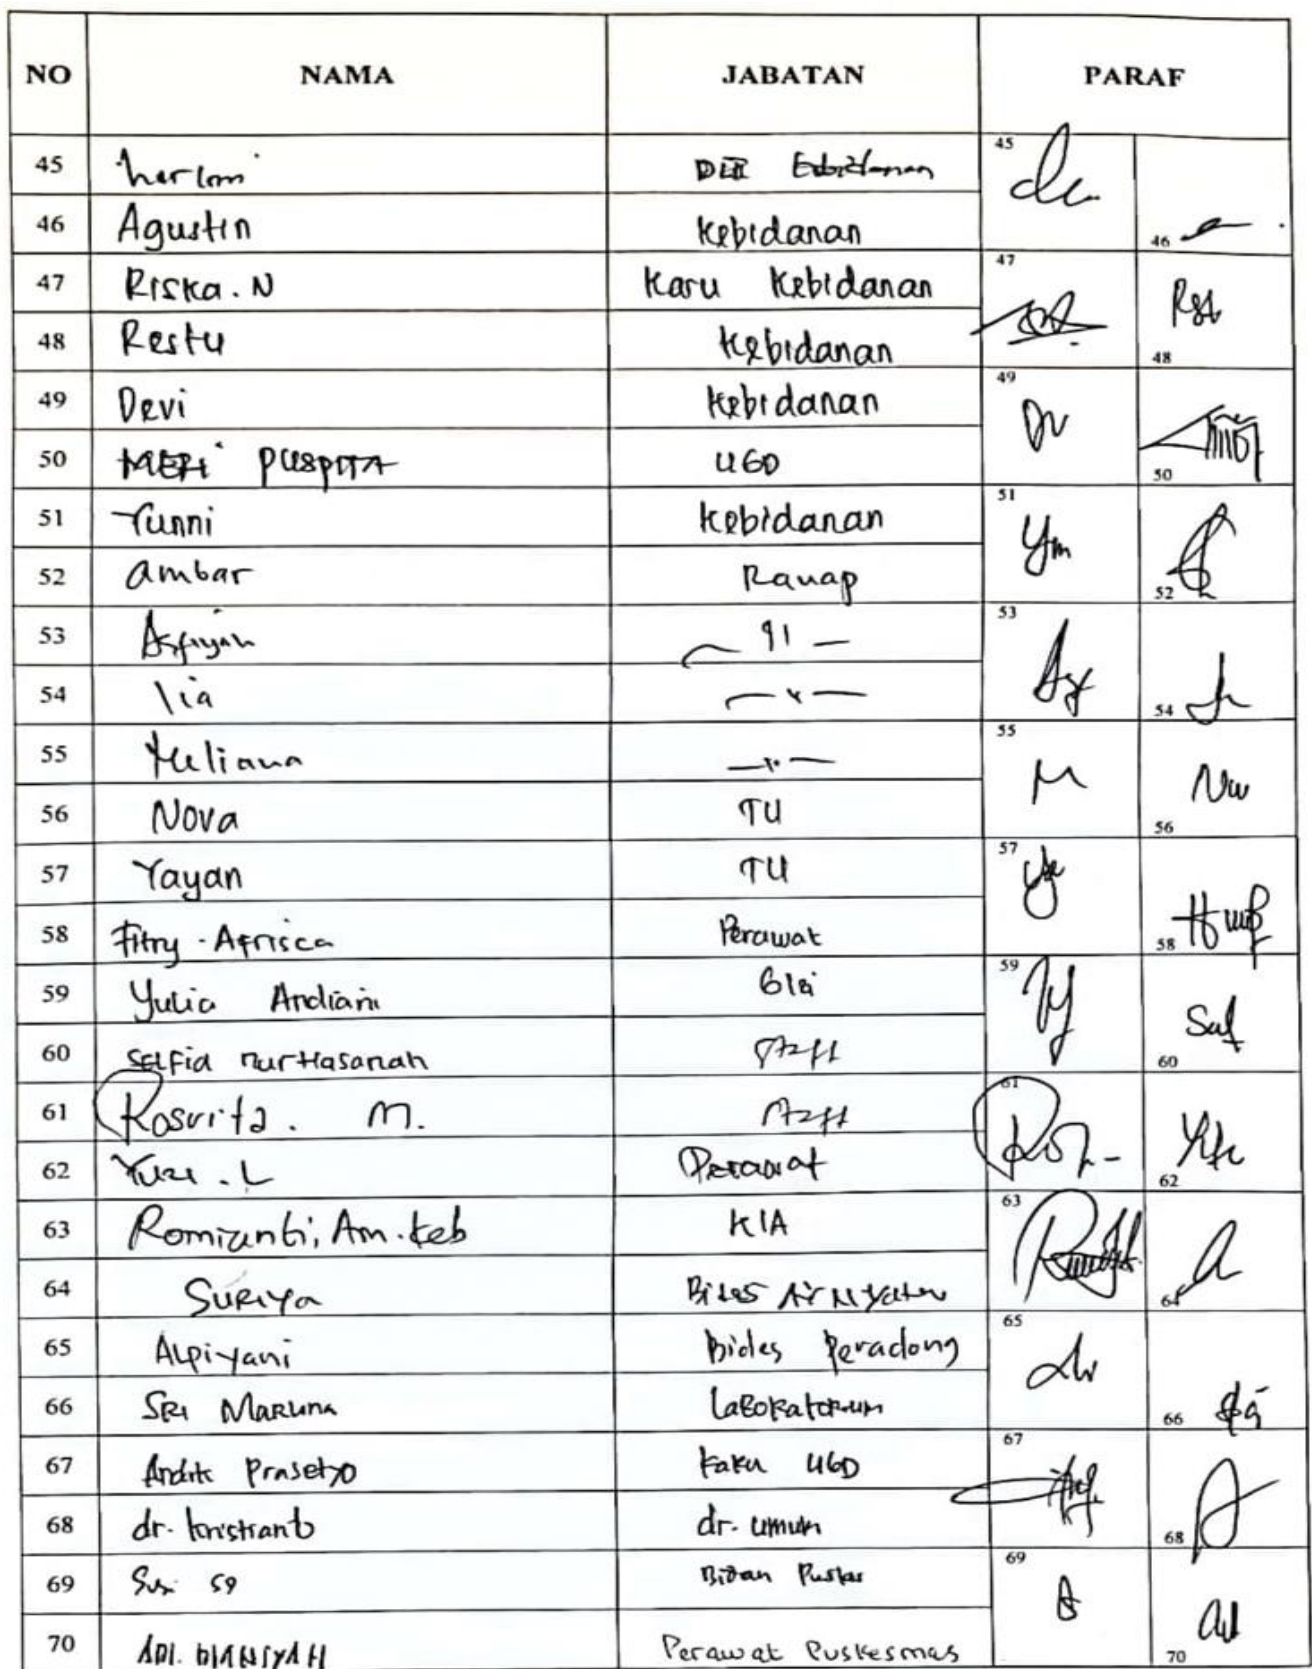 NO NAMA JABATAN PARAF
45 harlmi 45
46 Agustin Kebidanan 46
47 Riska. N Karu Kebidanan 47
48 Restu Kebidanan 48
49 Devi Kebidanan 49
50 MERI PUSPITA UGD 50
51 Yunni Kebidanan 51
52 ambar Ranap 52
53 Asfiyah — 11 — 53
54 lia 54
55 Meliana 55
56 Nova TU 56
57 Yayan TU 57
58 Fitry . Afrisca Perawat 58
59 Yulia Andiani Gizi 59
60 Selfia nurHasanah 60
61 Rosvita. M. 61
62 Yuzi . L Perawat 62
63 Romizanti, Am.Keb KIA 63
64 SURIYA Bides Air Nyatoh 64
65 Alpiyani Bides Peradong 65
66 SRI MARLINA LABORATORIUM 66
67 Andik Prasetyo Karu UGD 67
68 dr. kristianto dr. umum 68
69 Susi Bidan Puskes 69
70 ADI. DIANSYAH Perawat Puskesmas 70